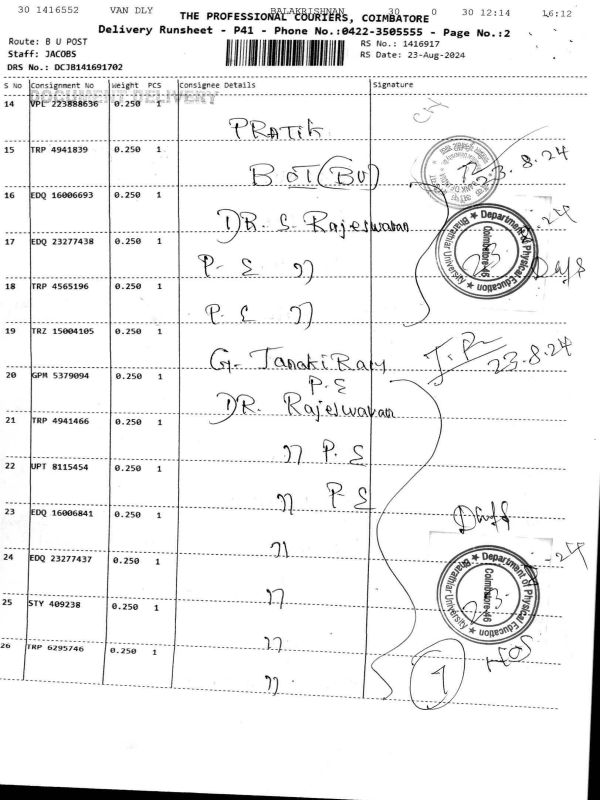 30 1416552 VAN DLY BALAKRISHNAN 30 0 30 12:14 16:12
THE PROFESSIONAL COURIERS, COIMBATORE
Delivery Runsheet - P41 - Phone No.:0422-3505555 - Page No.:2
Route: B U POST
RS No.: 1416917
Staff: JACOBS
RS Date: 23-Aug-2024
DRS No.: DCJB141691702
S No Consignment No Weight PCS Consignee Details Signature
DOCUMENT DELIVERY
14 VPL 223888636 0.250 1 PRATIK
15 TRP 4941839 0.250 1 (BU) 23.8.24
16 EDQ 16006693 0.250 1 DR. S. Rajeswaran
17 EDQ 23277438 0.250 1 P. E 11
18 TRP 4565196 0.250 1 P. E 11
Department of Physical Education
Bharathiar University
Coimbatore-46
19 TRZ 15004105 0.250 1 G. Janaki Ram 23.8.24
P.E
20 GPM 5379094 0.250 1 DR. Rajeswaran
21 TRP 4941466 0.250 1 11 P. E
22 UPT 8115454 0.250 1 11 P E
23 EDQ 16006841 0.250 1 11
24 EDQ 23277437 0.250 1 11
25 STY 409238 0.250 1 11
26 TRP 6295746 0.250 1 11
Department of Physical Education
Bharathiar University
Coimbatore-46
7